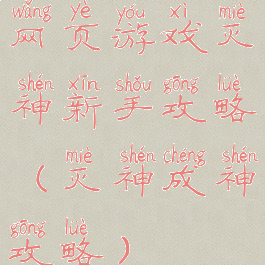 wǎng yè yóu xì miè
网页游戏灭
shén xīn shǒu gōng lüè
神新手攻略
miè shén chéng shén
（灭神成神
gōng lüè
攻略）